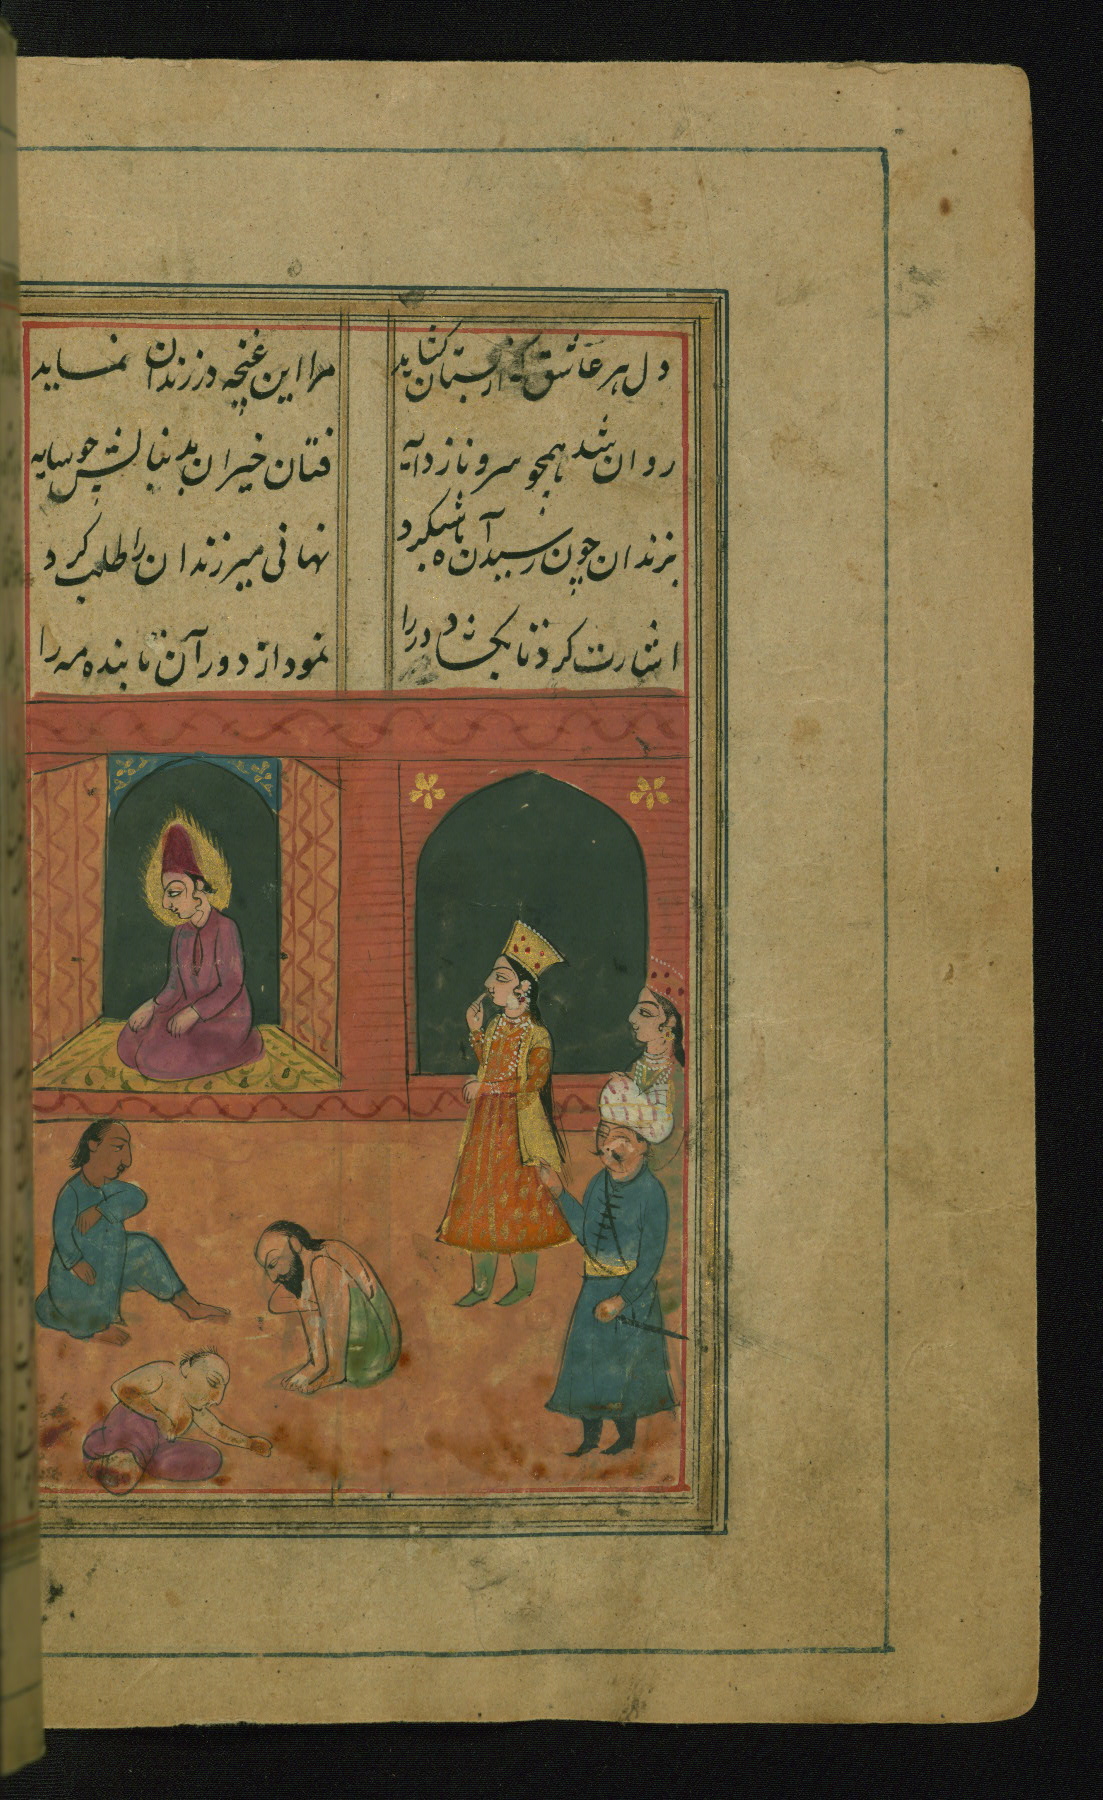 دل هر عاشق از بستان گشاید مرا این غنچه در زندان نماید
روان شد همچو سرو ناز دایه فتان خیزان بدنبالش چو سایه
بزندان چون رسید آن ماه شبگرد نهانی میر زندان را طلب کرد
اشارت کرد تا بگشاد در را نمود از دور آن تابنده مه را